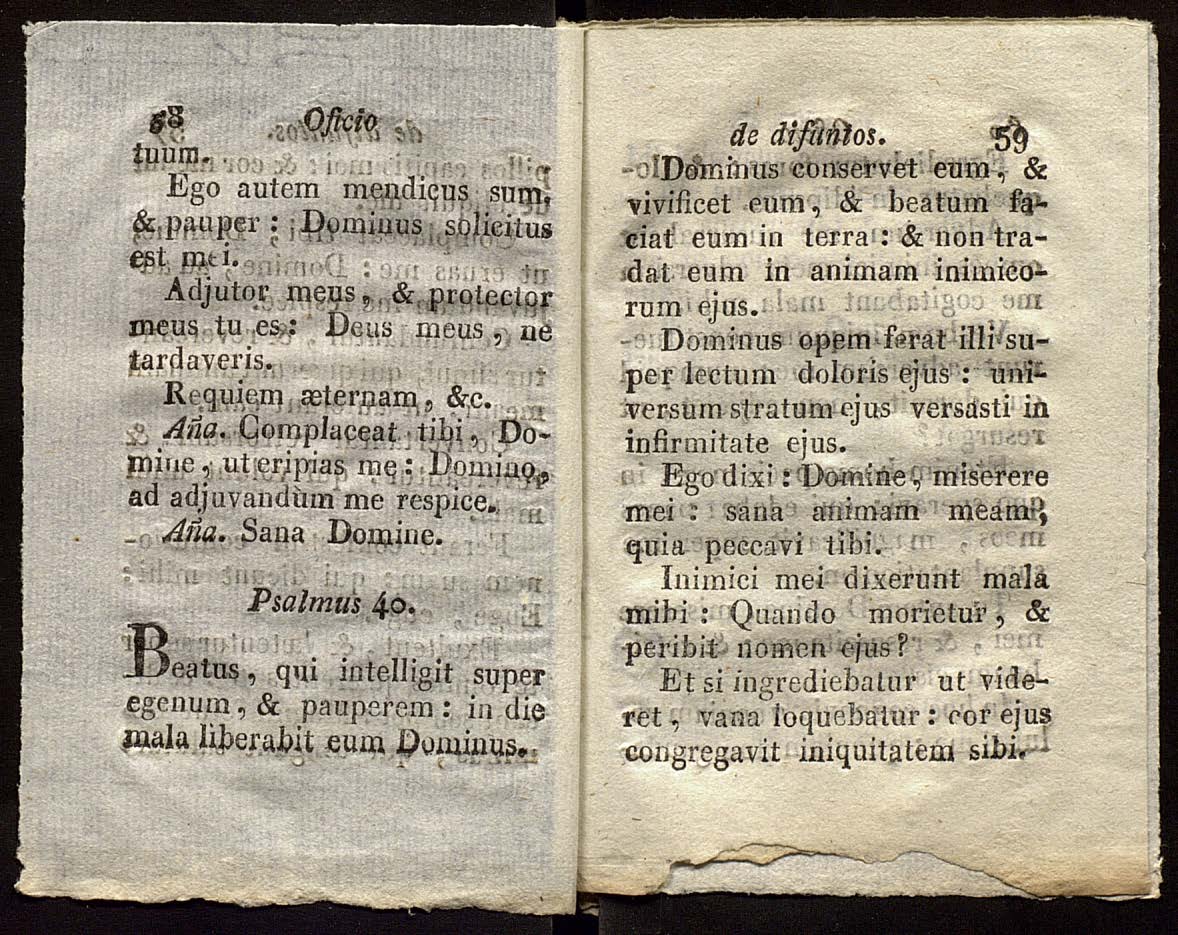 58 Oficio
tuum.
Ego autem mendicus sum,
& pauper : Dominus solicitus
est mei.
Adjutor meus, & protector
meus tu es : Deus meus, ne
tardaveris.
Requiem æternam, &c.
Aña. Complaceat tibi, Do-
mine, ut eripias me : Domino,
ad adjuvandùm me respice.
Aña. Sana Domine.
Psalmus 40.
Beatus, qui intelligit super
egenum, & pauperem : in die
mala liberabit eum Dominus.
de difuntos. 59
Dominus conservet eum, &
vivificet eum, & beatum fa-
ciat eum in terra : & non tra-
dat eum in animam inimico-
rum ejus.
Dominus opem ferat illi su-
per lectum doloris ejus : uni-
versum stratum ejus versasti in
infirmitate ejus.
Ego dixi : Domine, miserere
mei : sana animam meam,
quia peccavi tibi.
Inimici mei dixerunt mala
mihi : Quando morietur, &
peribit nomen ejus?
Et si ingrediebatur ut vide-
ret, vana loquebatur : cor ejus
congregavit iniquitatem sibi.